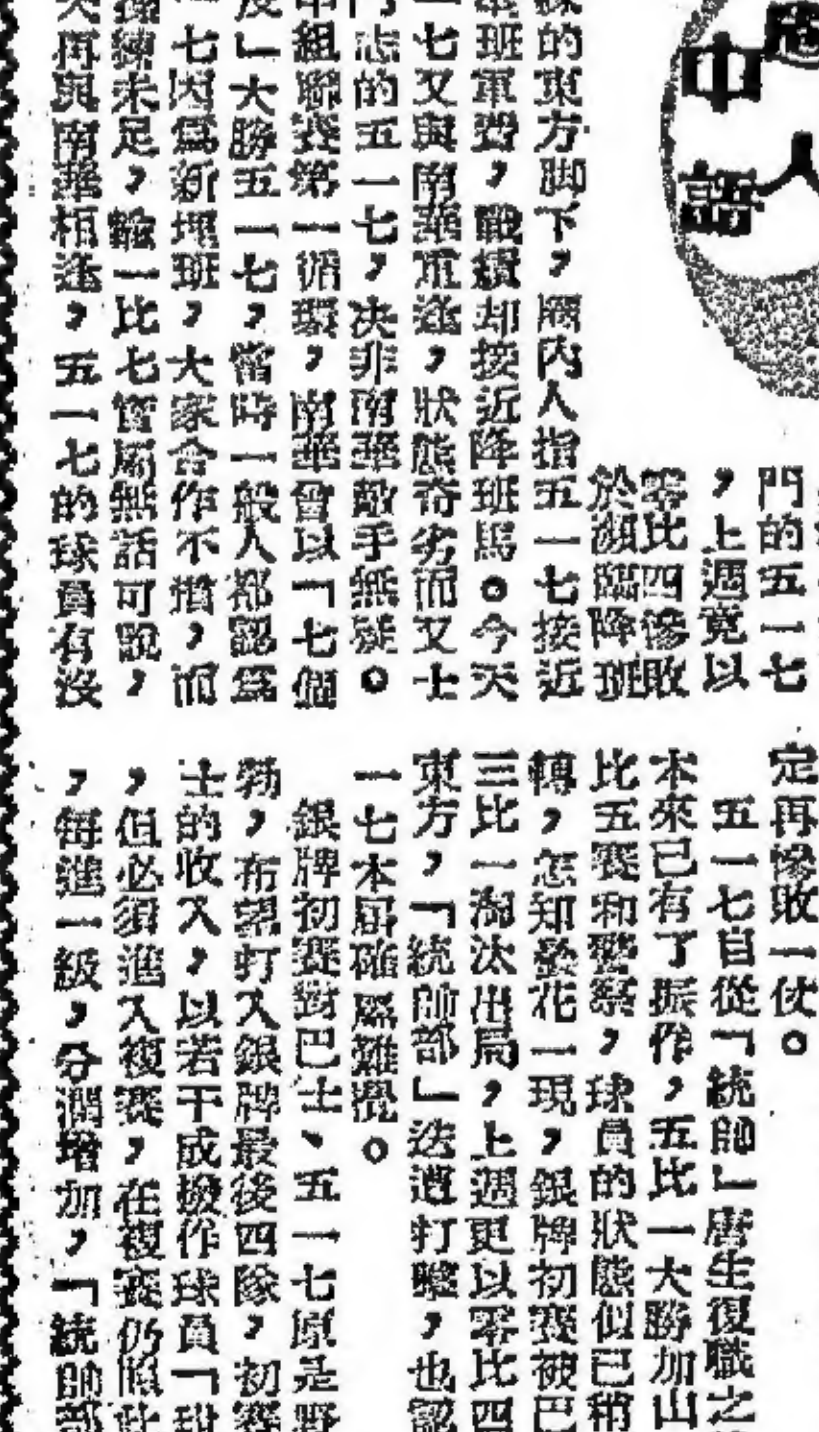 中
人
語
門的五一七
，上週竟以
零比四慘敗
於瀕臨降班
的東方脚下，圈內人指五一七接近
班軍費，戰績却接近降班馬。今天
七又與南華重逢，狀態奇劣而又士
志的五一七，决非南華敵手無疑。
組聯賽第一循環，南華曾以「七個
」大勝五一七，當時一般人都認爲
七因爲新埋班，大家合作不慣，而
操練未足，輸一比七實屬無話可說，
再與南華相逢，五一七的球員有沒
定再慘敗一仗。
五一七自從「統帥」唐生復職之
本來已有了振作，五比一大勝加山
比五賽和警察，球員的狀態似已稍
轉，怎知曇花一現，銀牌初賽被巴
三比一淘汰出局，上週更以零比四
東方，「統帥部」迭遭打擊，也認
一七本屆確爲難攪。
銀牌初賽對巴士、五一七原是野
勃，希望打入銀牌最後四隊，初賽
士的收入，以若干成撥作球員「甜
，但必須進入複賽，在複賽仍照此
，每進一級，分潤增加，「統帥部